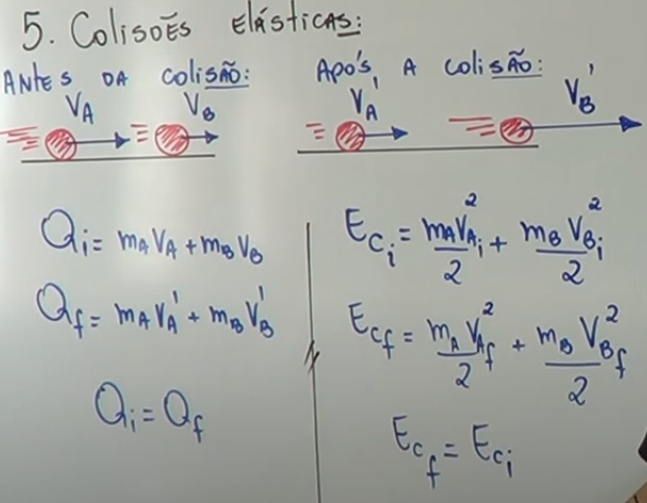 5. Colisões elásticas:
Antes da colisão:
V_A V_B
Após, a colisão:
V_A' V_B'
Q_i = m_A V_A + m_B V_B
Q_f = m_A V_A' + m_B V_B'
Q_i = Q_f
E_c_i = m_A V_A_i²/2 + m_B V_B_i²/2
E_c_f = m_A V_A_f²/2 + m_B V_B_f²/2
E_c_f = E_c_i